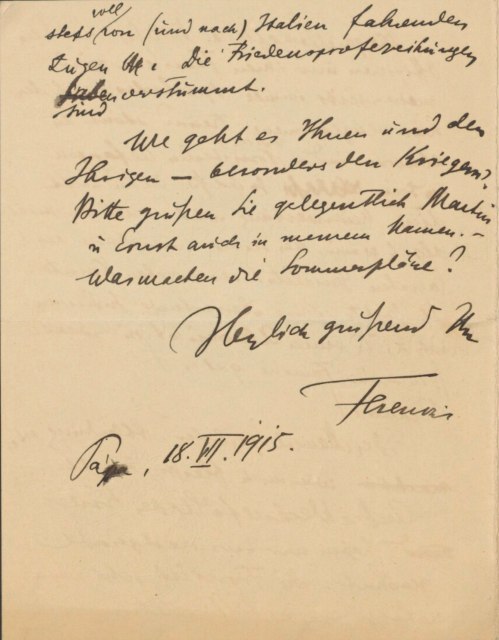 voll
stets von (und nach) Italien fahrenden
Zügen ist. Die Friedensprofezeihungen
sind verstummt.
Wie geht es Ihnen und den
Ihrigen – besonders den Kriegern?
Bitte grüßen Sie gelegentlich Martin
u Ernst auch in meinem Namen. –
Was machen die Sommerpläne?
Herzlich grüßend Ihr
Ferenczi
Pápa, 18. VI. 1915.